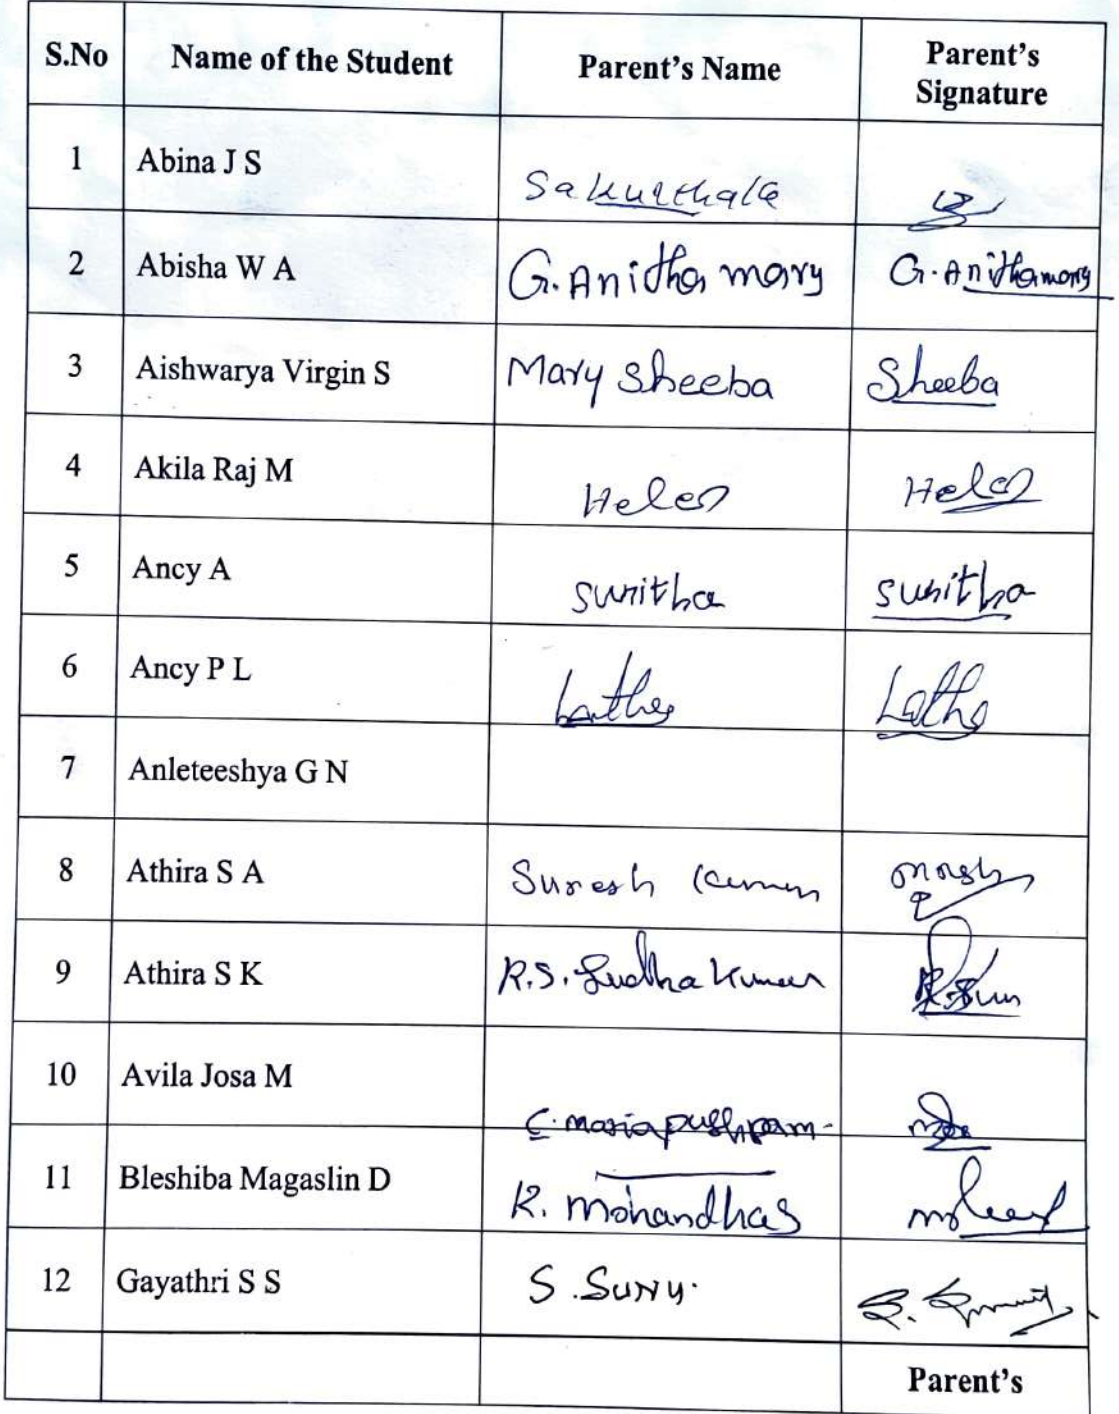 S.No Name of the Student Parent's Name Parent's Signature
1 Abina J S Sakunthala
2 Abisha W A G. Anitha mary G. Anithamary
3 Aishwarya Virgin S Mary Sheeba Sheeba
4 Akila Raj M Helen Helen
5 Ancy A sunitha sunitha
6 Ancy P L Latha Latha
7 Anleteeshya G N
8 Athira S A Suresh Kumar
9 Athira S K R.S. Sudha Kumar
10 Avila Josa M C. maria pushpam
11 Bleshiba Magaslin D K. Mohandhas
12 Gayathri S S S. Suny.
Parent's